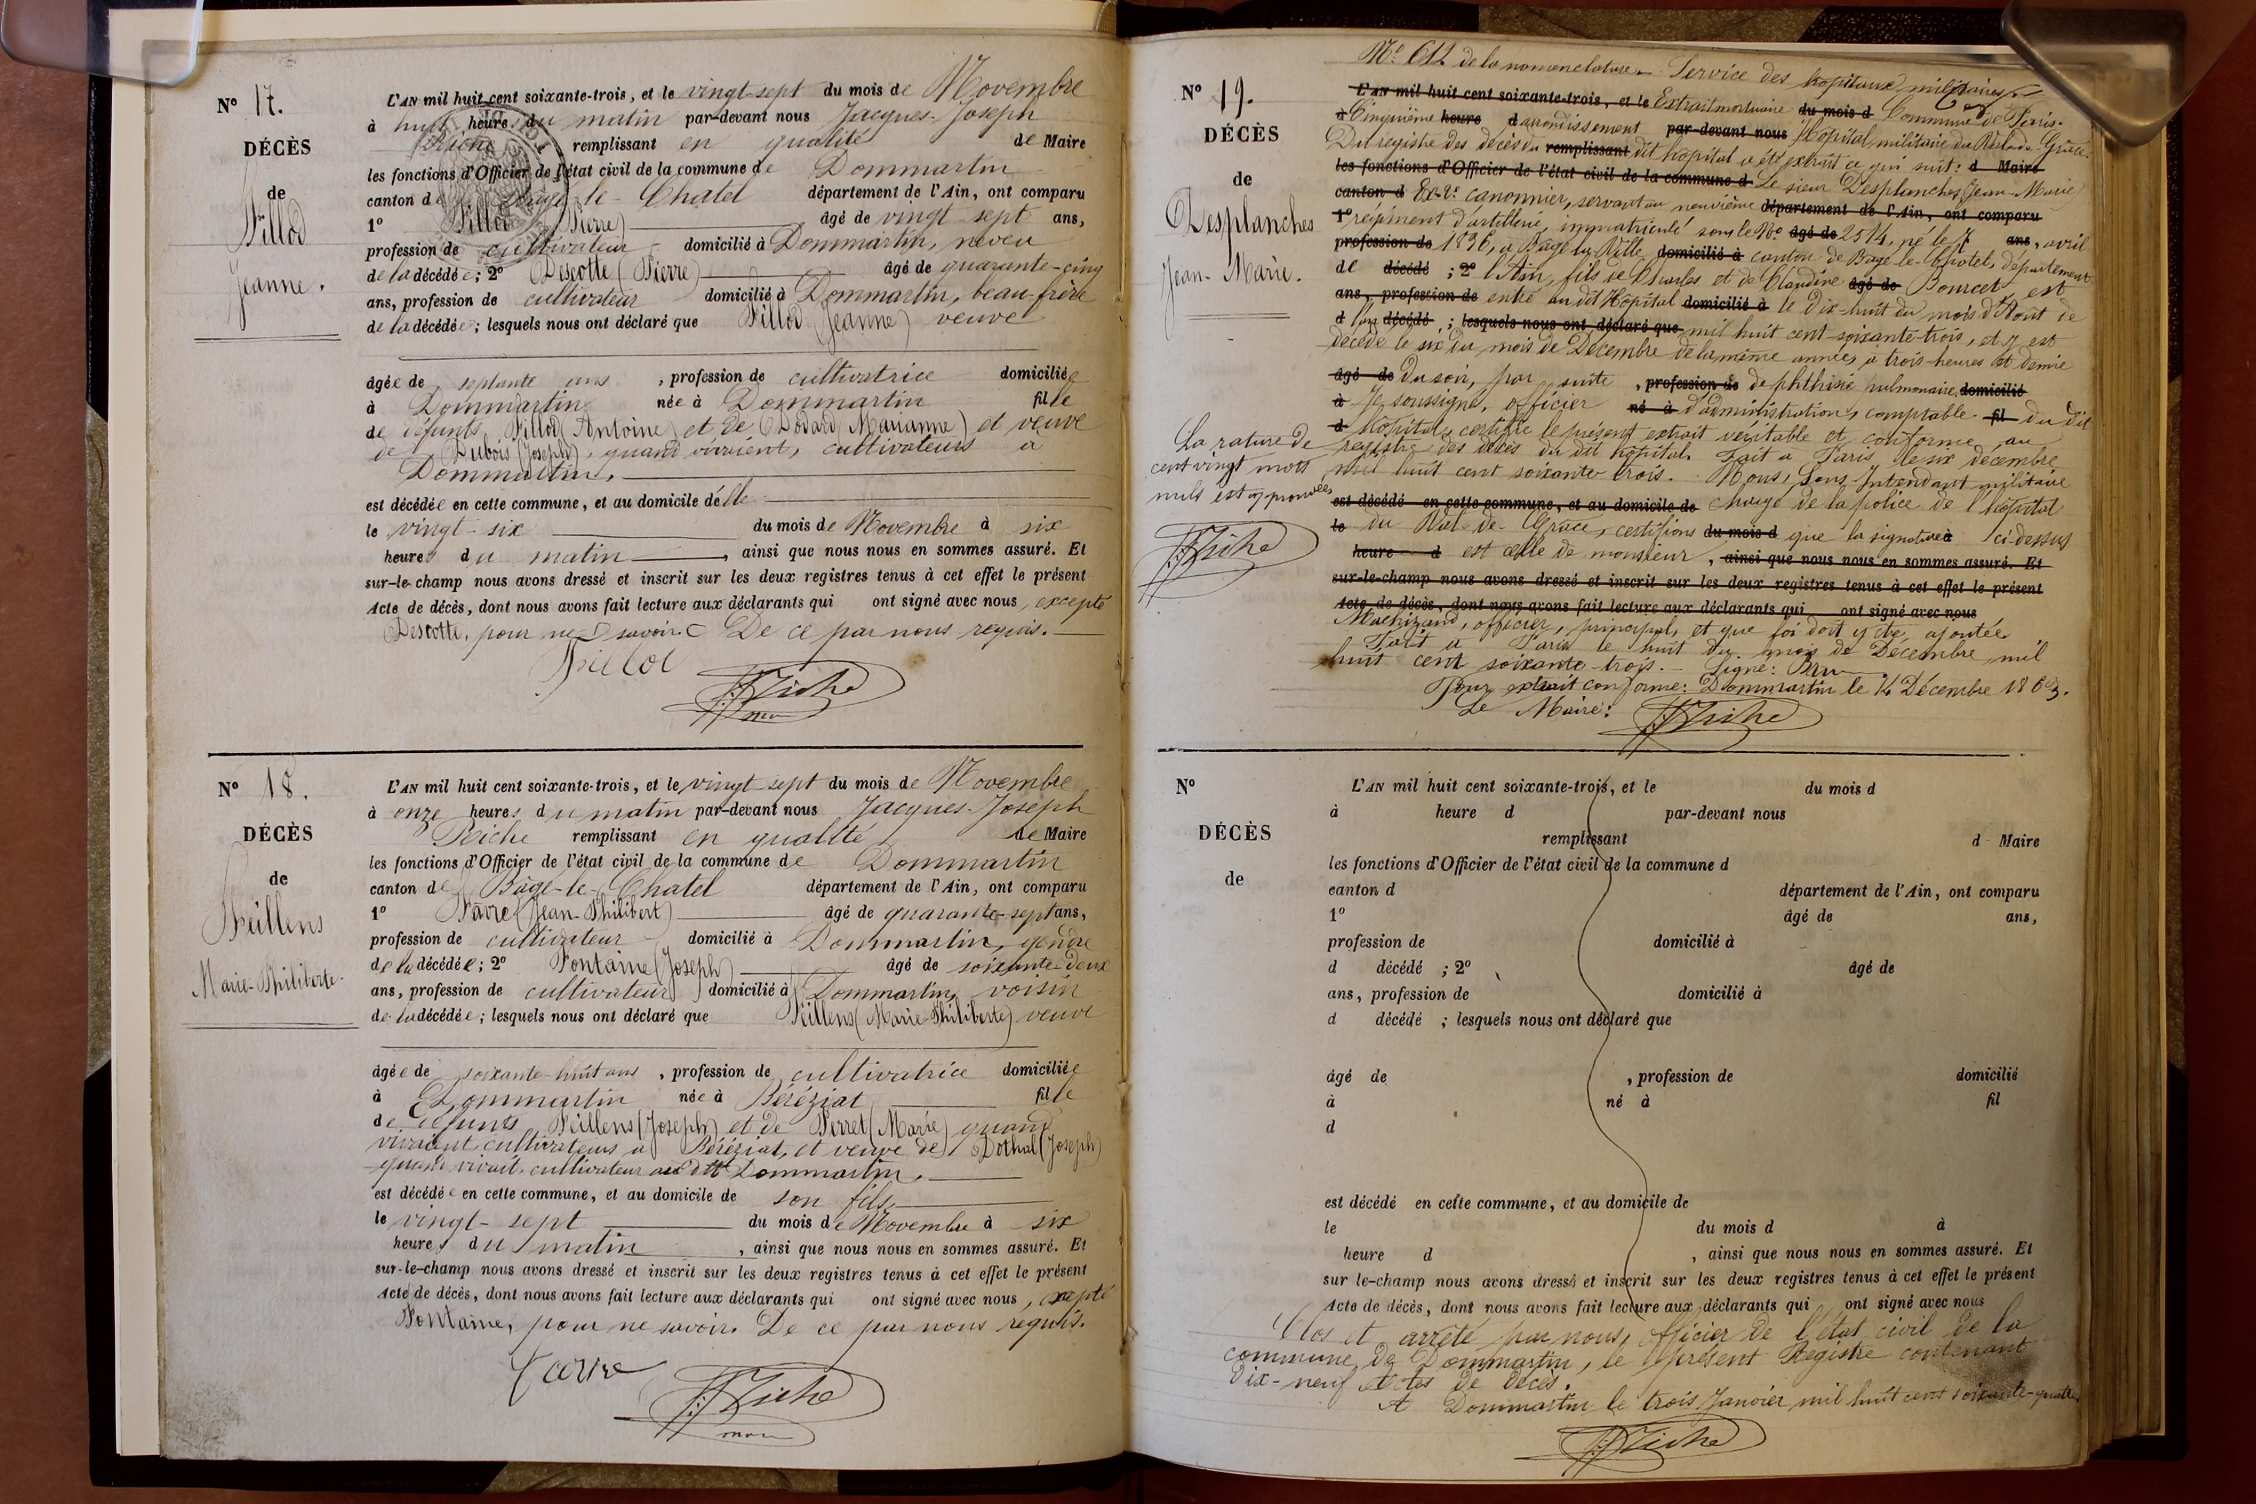 N° 17.
DÉCÈS
de
Fillod
Jeanne.
L'AN mil huit cent soixante-trois, et le vingt-sept du mois de Novembre
à huit heures du matin par-devant nous Jacques-Joseph
Riche remplissant en qualité de Maire
les fonctions d'Officier de l'état civil de la commune de Dommartin
canton de Bâgé-le-Chatel département de l'Ain, ont comparu
1° Fillod (Pierre) âgé de vingt-sept ans,
profession de cultivateur domicilié à Dommartin, neveu
de la décédée; 2° Descotte (Pierre) âgé de quarante-cinq
ans, profession de cultivateur domicilié à Dommartin, beau-frère
de la décédée; lesquels nous ont déclaré que Fillod (Jeanne) veuve
âgée de septante ans, profession de cultivatrice domiciliée
à Dommartin née à Dommartin fille
de défunts Fillod (Antoine) et de (Dodard Marianne) et veuve
de Dubois (Joseph), quand vivaient, cultivateurs à
Dommartin,
est décédée en cette commune, et au domicile d'elle
le vingt-six du mois de Novembre à six
heures du matin, ainsi que nous nous en sommes assuré. Et
sur-le-champ nous avons dressé et inscrit sur les deux registres tenus à cet effet le présent
Acte de décès, dont nous avons fait lecture aux déclarants qui ont signé avec nous, excepté
Descotte, pour ne savoir. De ce par nous requis.
Fillod
JJRiche
N° 18.
DÉCÈS
de
Feillens
Marie-Philiberte.
L'AN mil huit cent soixante-trois, et le vingt sept du mois de Novembre
à onze heures du matin par-devant nous Jacques-Joseph
Riche remplissant en qualité de Maire
les fonctions d'Officier de l'état civil de la commune de Dommartin
canton de Bâgé-le-Chatel département de l'Ain, ont comparu
1° Favre (Jean-Philibert) âgé de quarante-sept ans,
profession de cultivateur domicilié à Dommartin, gendre
de la décédée; 2° Fontaine (Joseph) âgé de soixante-deux
ans, profession de cultivateur domicilié à Dommartin, voisin
de la décédée; lesquels nous ont déclaré que Feillens (Marie-Philiberte) veuve
âgée de soixante-huit ans, profession de cultivatrice domiciliée
à Dommartin née à Béréziat fille
de défunts Feillens (Joseph) et de Perret (Marie) quand
vivaient cultivateurs à Béréziat, et veuve de Dothal (Joseph)
quand vivait cultivateur au dit Dommartin,
est décédée en cette commune, et au domicile de son fils,
le vingt-sept du mois de Novembre à six
heures du matin, ainsi que nous nous en sommes assuré. Et
sur-le-champ nous avons dressé et inscrit sur les deux registres tenus à cet effet le présent
Acte de décès, dont nous avons fait lecture aux déclarants qui ont signé avec nous, excepté
Fontaine, pour ne savoir. De ce par nous requis.
Favre
JJRiche
N° 19.
DÉCÈS
de
Desplanches
Jean-Marie.
N° 612 de la nomenclature. Service des hopitaux militaires.
L'AN mil huit cent soixante-trois, et le Extrait mortuaire du mois d Commune de Paris.
à Cinquième heure d arrondissement par-devant nous Hôpital militaire du Val-de-Grâce.
Du registre des décès du remplissant dit hopital a été extrait ce qui suit: d Maire
les fonctions d'Officier de l'état civil de la commune d Le sieur Desplanches Jean-Marie
canton d canonnier, servant au neuvième département de l'Ain, ont comparu
1° régiment d'artillerie, immatriculé sous le N° âgé de 2514, né le 7 ans, avril
profession de 1836, à Bagé la Ville domicilié à canton de Bagé-le-Chatel, département
de décédé; 2° l'Ain, fils de Charles et de Claudine âgé de Pourcet est
ans, profession de entré au dit Hopital domicilié à le Dix-huit du mois d'Aout de
d l'an décédé; lesquels nous ont déclaré que mil huit cent soixante-trois, et y est
décédé le six du mois de Décembre de la même année, à trois heures et demie
âgé de du soir, par suite, profession de de phthisie pulmonaire. domicilié
à Je soussigné, officier né à d'administration, comptable fil du dit
d Hôpital, certifie le présent extrait véritable et conforme au
registre des décès du dit hôpital. Fait à Paris le six décembre
mil huit cent soixante-trois. Nous, Sous-Intendant militaire
est décédé en cette commune, et au domicile de chargé de la police de l'hôpital
le du Val-de-Grâce, certifions du mois d que la signature à ci-dessus
heure d est celle de monsieur, ainsi que nous nous en sommes assuré. Et
sur-le-champ nous avons dressé et inscrit sur les deux registres tenus à cet effet le présent
Acte de décès, dont nous avons fait lecture aux déclarants qui ont signé avec nous
officier, principal, et que foi doit y être ajoutée.
Fait à Paris le huit du mois de Décembre mil
huit cent soixante-trois. Signé: Brun
Pour extrait conforme: Dommartin le 14 Décembre 1863.
Le Maire:
JJRiche
La rature de
cent vingt mots
nuls est approuvée.
JJRiche
N°
DÉCÈS
de
L'AN mil huit cent soixante-trois, et le du mois d
à heure d par-devant nous
remplissant d Maire
les fonctions d'Officier de l'état civil de la commune d
canton d département de l'Ain, ont comparu
1° âgé de ans,
profession de domicilié à
d décédé; 2° âgé de
ans, profession de domicilié à
d décédé; lesquels nous ont déclaré que
âgé de, profession de domicilié
à né à fil
d
est décédé en cette commune, et au domicile de
le du mois d à
heure d, ainsi que nous nous en sommes assuré. Et
sur le-champ nous avons dressé et inscrit sur les deux registres tenus à cet effet le présent
Acte de décès, dont nous avons fait lecture aux déclarants qui ont signé avec nous
Clos et arrêté par nous, officier de l'état civil de la
commune de Dommartin, le présent Registre contenant
dix-neuf actes de décès.
A Dommartin le trois Janvier mil huit cent soixante-quatre.
JJRiche